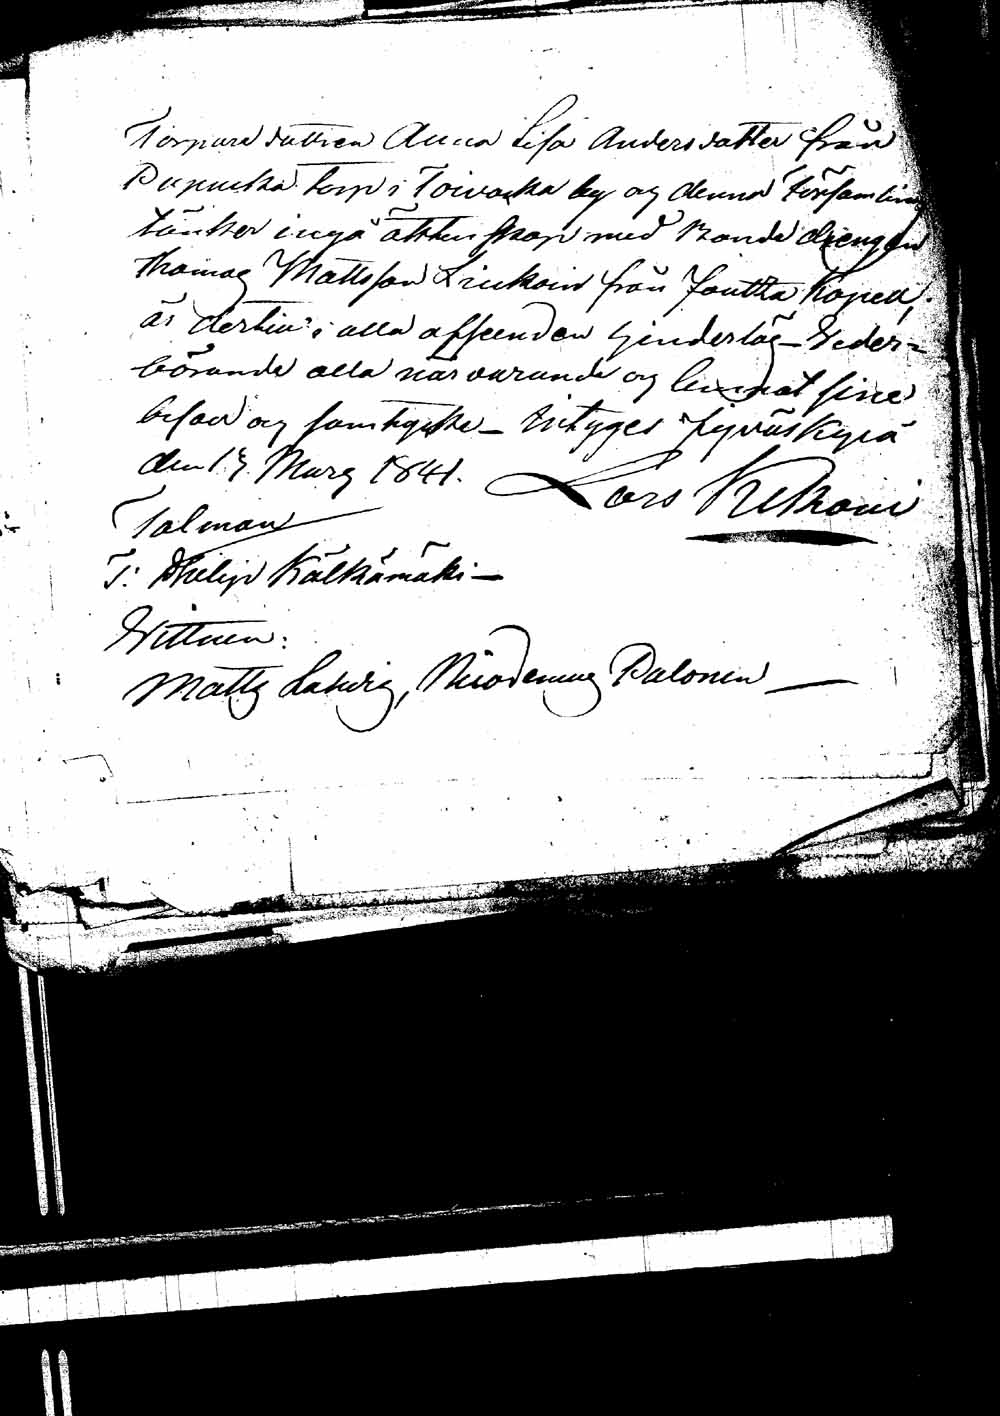 Torpare dottren Anna Lisa Andersdotter från
Pupucka torp i Toivacka by og denna församling
tänker ingå ächtenskap med Bonde drengen
Thomas Mattsson Liukoin från Joutza Kapell,
är dertill i alla afseenden hinderlös – Veder-
börande alla när varande og lemnat sine
bifall og samtycke – Intyges Jyväskylä
den 17 Mars 1841. Lars Kekoni
Talman
T: Philip Kälkämäki –
Vittnen:
Matts Ludvig, Nicodemus Palonen –